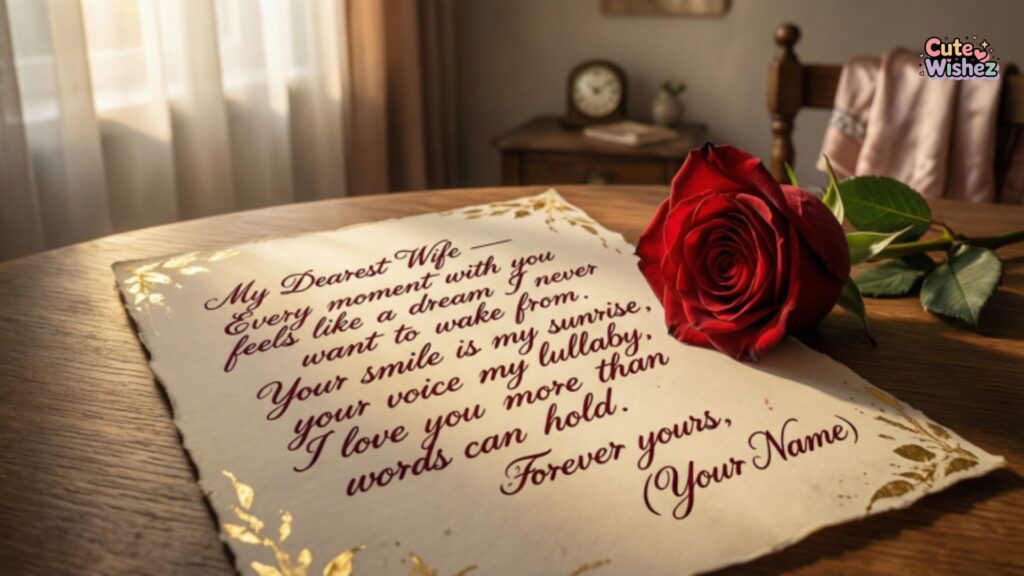 My Dearest Wife —
Every moment with you
feels like a dream I never
want to wake from.
Your smile is my sunrise,
your voice my lullaby,
I love you more than
words can hold.
Forever yours,
(Your Name)
Cute
Wishez